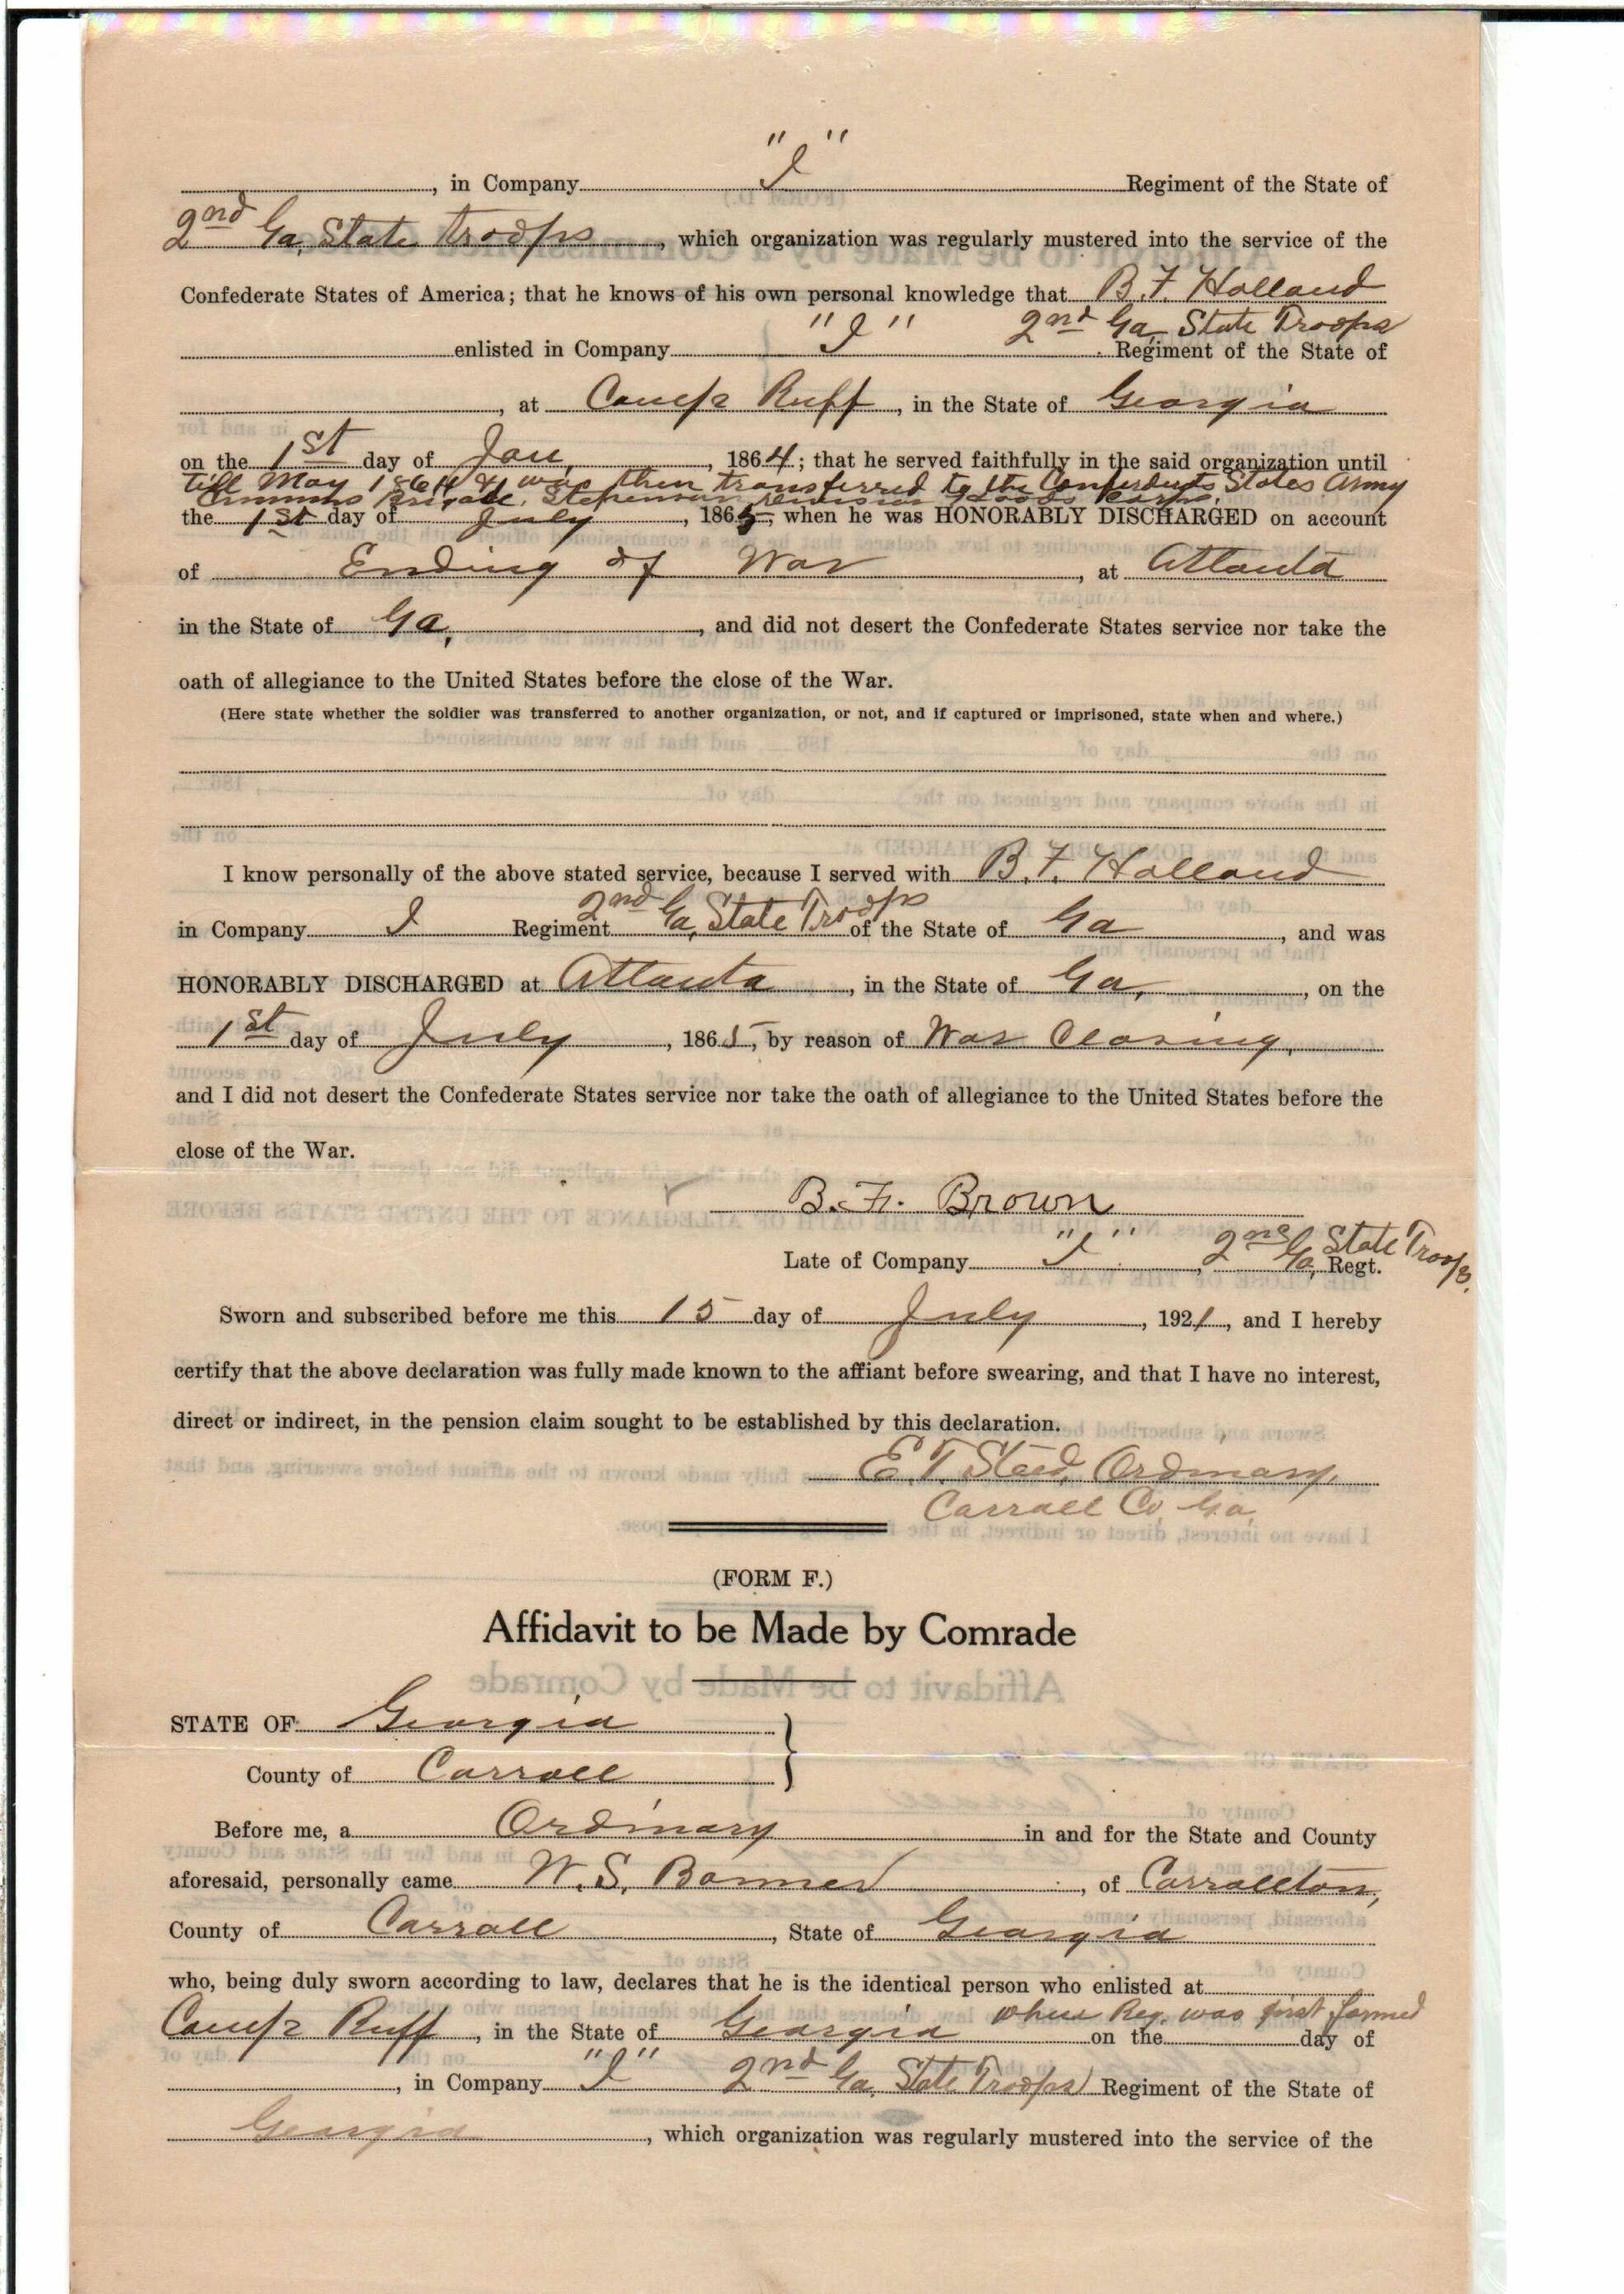 , in Company "I" Regiment of the State of
2nd Ga, State troops, which organization was regularly mustered into the service of the
Confederate States of America; that he knows of his own personal knowledge that B. F. Holland
enlisted in Company "I" 2nd Ga, State Troops Regiment of the State of
, at Camp Ruff, in the State of Georgia
on the 1st day of Jan, 1864; that he served faithfully in the said organization until
till May 1864 & was then transferred to the Confederate States Army
Brigade, Stevenson Hoods Corps.
the 1st day of July, 1865, when he was HONORABLY DISCHARGED on account
of Ending of War, at Atlanta
in the State of Ga., and did not desert the Confederate States service nor take the
oath of allegiance to the United States before the close of the War.
(Here state whether the soldier was transferred to another organization, or not, and if captured or imprisoned, state when and where.)
I know personally of the above stated service, because I served with B. F. Holland
in Company I Regiment 2nd Ga, State Troops of the State of Ga, and was
HONORABLY DISCHARGED at Atlanta, in the State of Ga., on the
1st day of July, 1865, by reason of War Closing,
and I did not desert the Confederate States service nor take the oath of allegiance to the United States before the
close of the War.
B. F. Brown
Late of Company "I", 2nd Ga, State Troops. Regt.
Sworn and subscribed before me this 15 day of July, 1921, and I hereby
certify that the above declaration was fully made known to the affiant before swearing, and that I have no interest,
direct or indirect, in the pension claim sought to be established by this declaration.
E. T. Steed, Ordinary.
Carroll Co, Ga,
(FORM F.)
Affidavit to be Made by Comrade
STATE OF Georgia
County of Carroll
Before me, a Ordinary in and for the State and County
aforesaid, personally came W. S. Bonner, of Carrollton,
County of Carroll, State of Georgia
who, being duly sworn according to law, declares that he is the identical person who enlisted at
Camp Ruff, in the State of Georgia when Reg. was first formed on the day of
, in Company "I" 2nd Ga, State Troops Regiment of the State of
Georgia, which organization was regularly mustered into the service of the